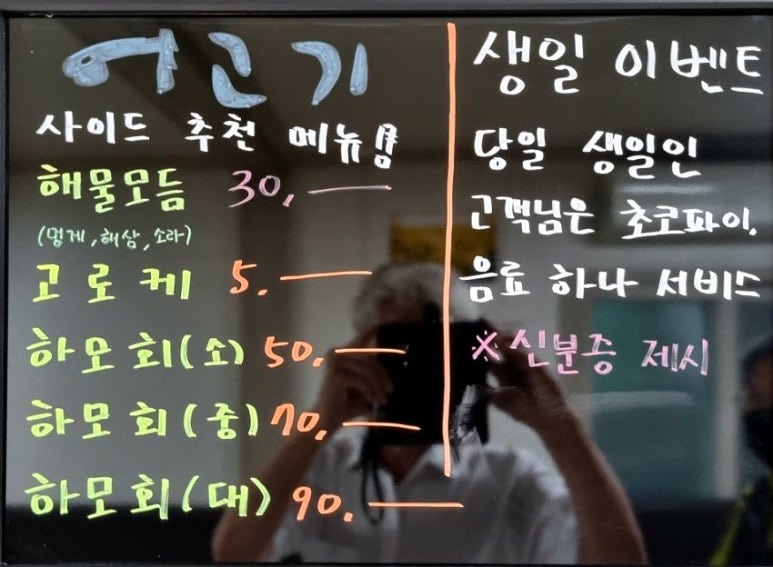 어근기
사이드 추천 메뉴!!
해물모듬 30,—
(멍게, 해삼, 소라)
고로케 5.—
하모회(소) 50.—
하모회(중) 70.—
하모회(대) 90.—
생일 이벤트
당일 생일인
고객님은 초코파이.
음료 하나 서비스
※신분증 제시